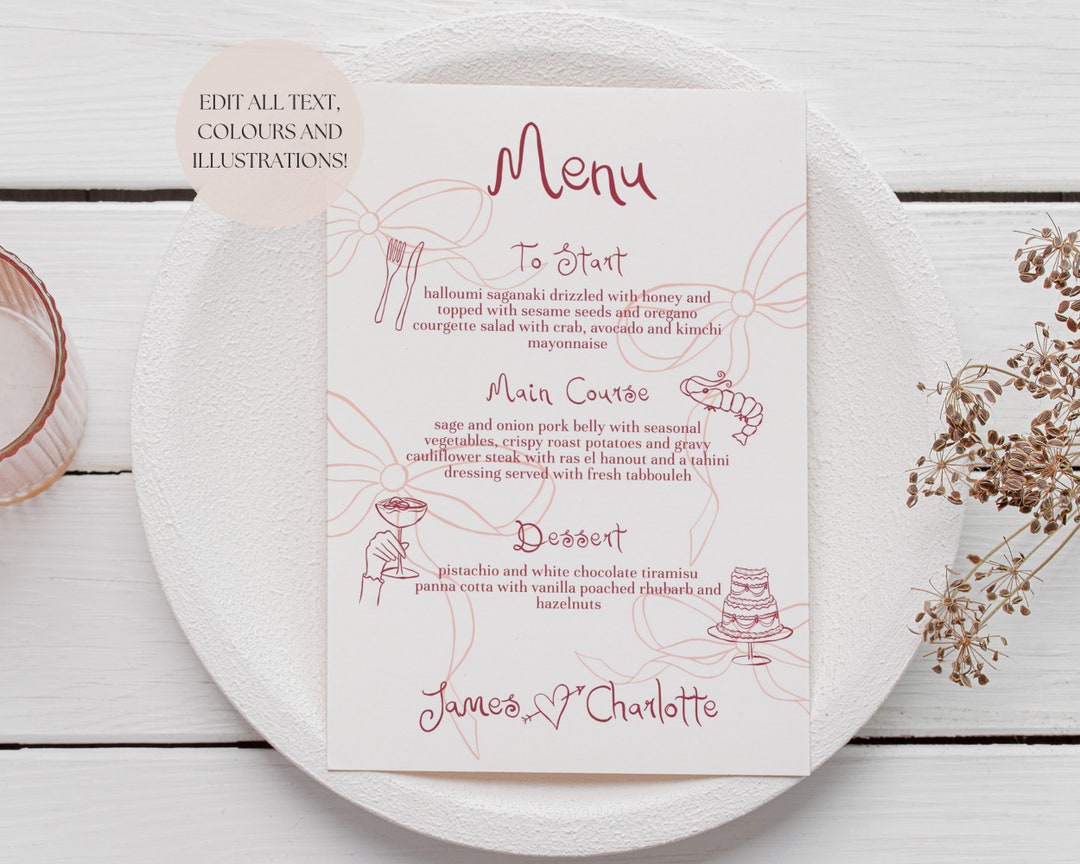 EDIT ALL TEXT,
COLOURS AND
ILLUSTRATIONS!
Menu
To Start
halloumi saganaki drizzled with honey and
topped with sesame seeds and oregano
courgette salad with crab, avocado and kimchi
mayonnaise
Main Course
sage and onion pork belly with seasonal
vegetables, crispy roast potatoes and gravy
cauliflower steak with ras el hanout and a tahini
dressing served with fresh tabbouleh
Dessert
pistachio and white chocolate tiramisu
panna cotta with vanilla poached rhubarb and
hazelnuts
James Charlotte